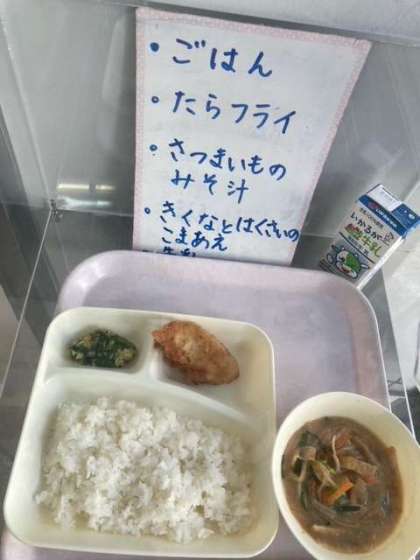 ・ごはん
・たらフライ
・さつまいもの
みそ汁
・きくなとはくさいの
ごまあえ
いかるが
牛乳